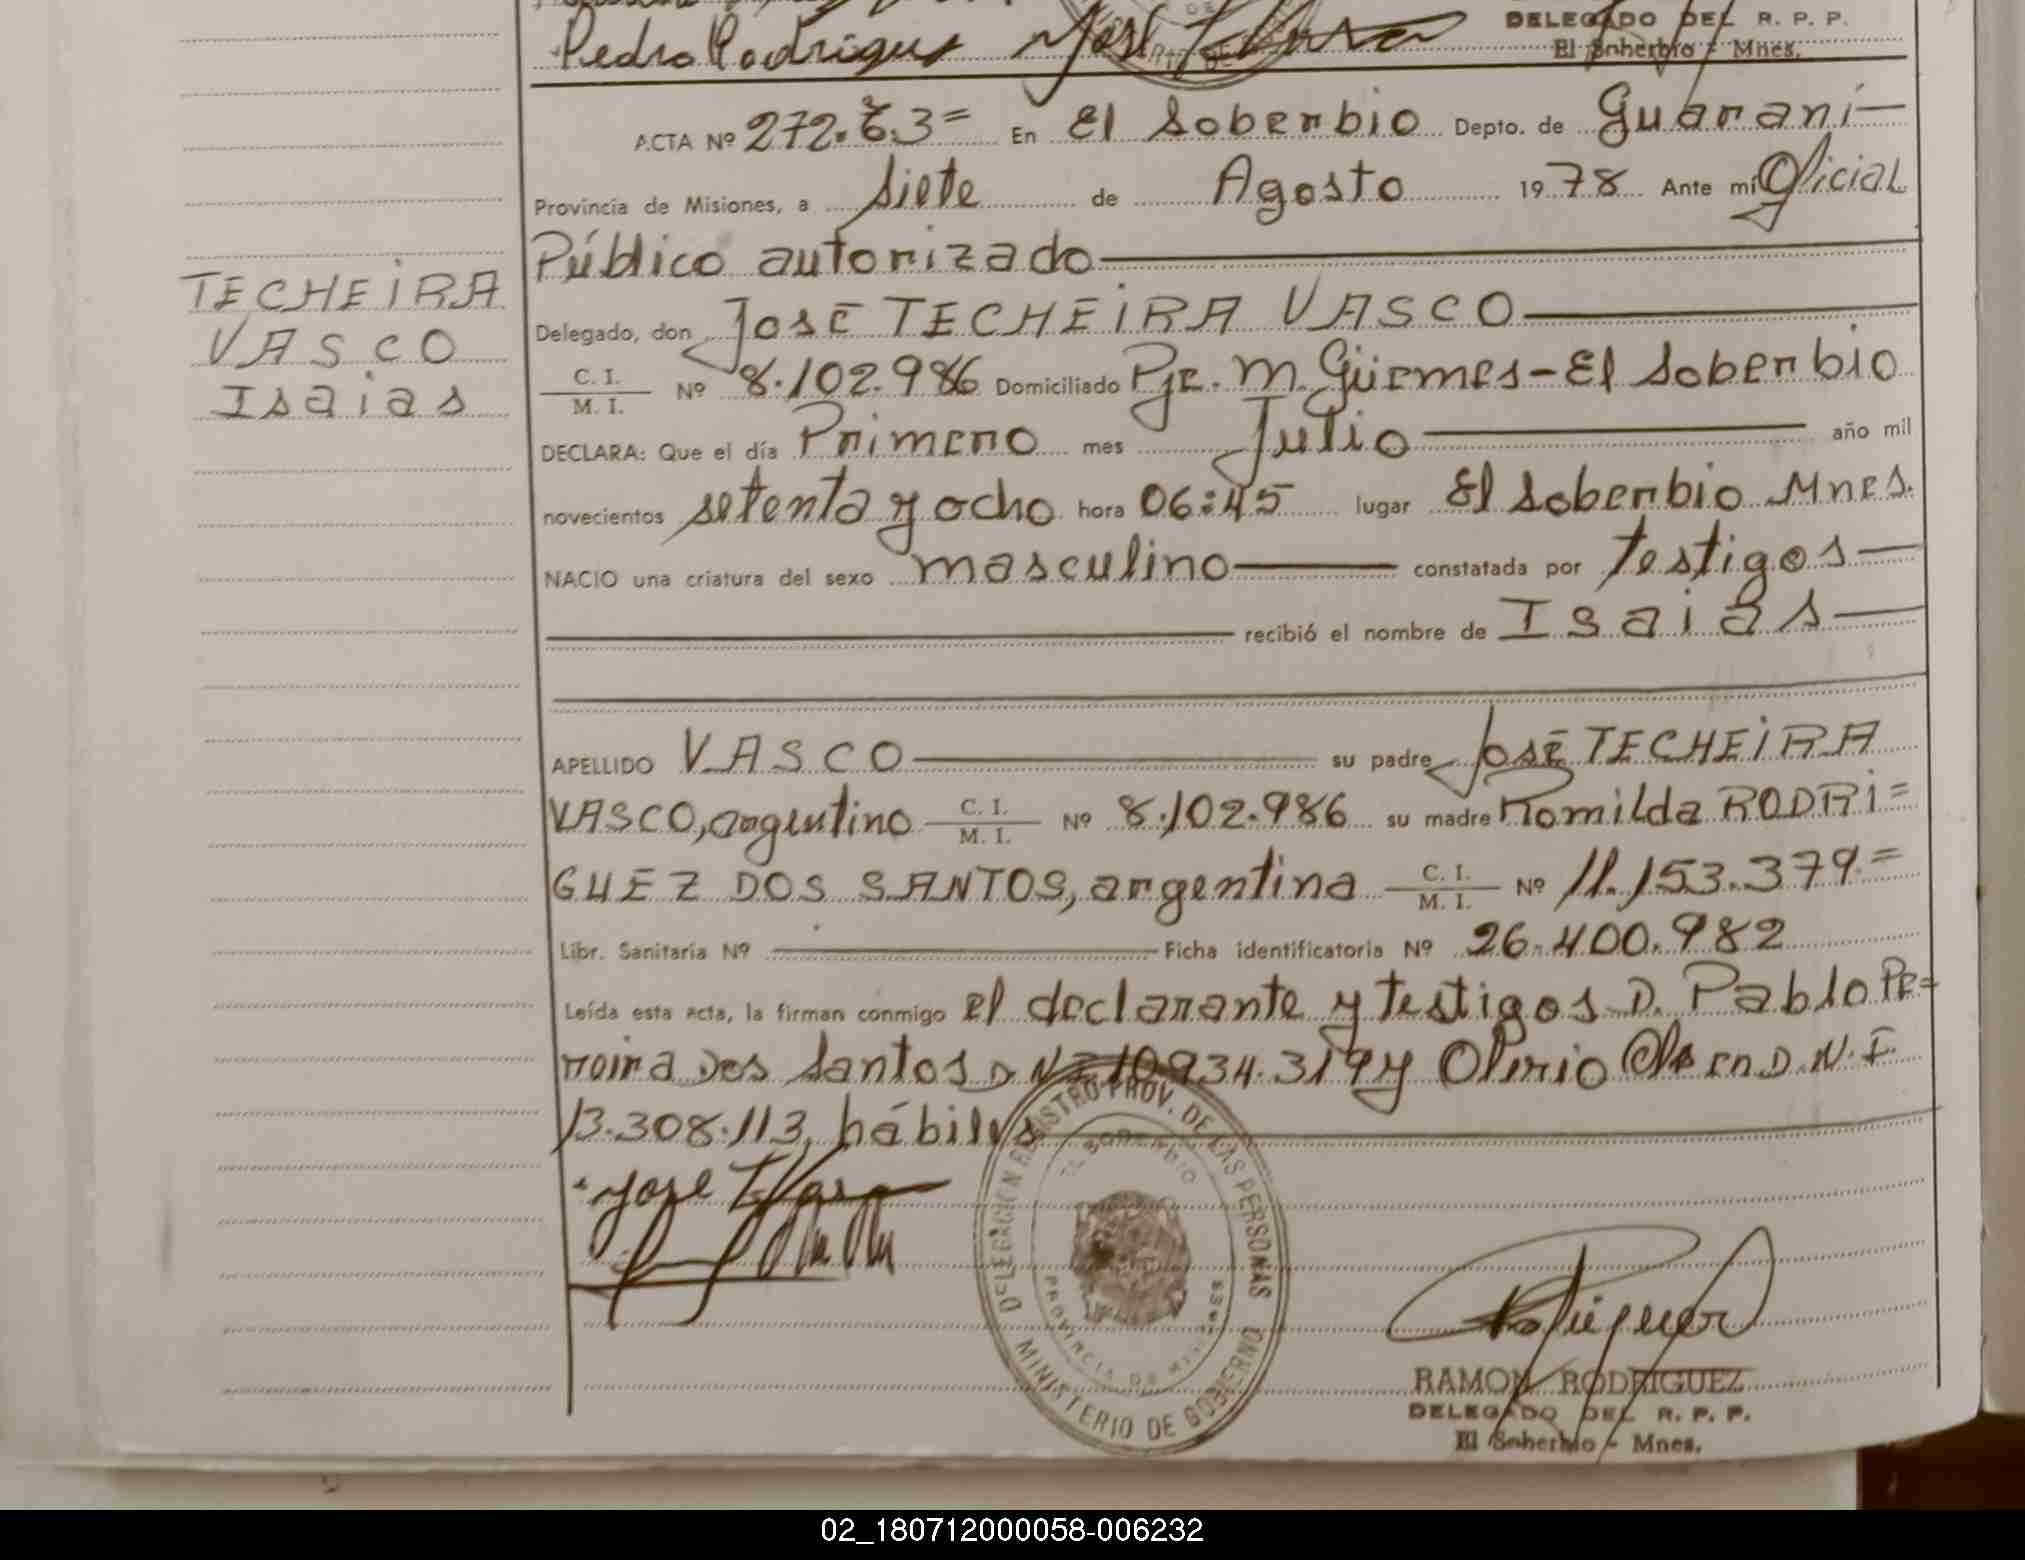 Pedro Rodriguez
DELEGADO DEL R. P. P.
El Soberbio - Mnes.
ACTA Nº 272.T.3= En El Soberbio Depto. de Guaraní
Provincia de Misiones, a siete de Agosto 1978 Ante mí Oficial
Público autorizado
TECHEIRA
VASCO
Isaias
Delegado, don José TECHEIRA VASCO
C. I. / M. I. Nº 8.102.986 Domiciliado Pje. M. Güemes-El Soberbio
DECLARA: Que el día Primero mes Julio año mil
novecientos setenta y ocho hora 06:45 lugar El Soberbio Mnes.
NACIO una criatura del sexo masculino constatada por testigos
recibió el nombre de Isaias
APELLIDO VASCO su padre José TECHEIRA
VASCO, argentino C. I. / M. I. Nº 8.102.986 su madre Romilda RODRI=
GUEZ DOS SANTOS, argentina C. I. / M. I. Nº 11.153.379=
Libr. Sanitaria Nº Ficha identificatoria Nº 26.400.982
Leída esta acta, la firman conmigo el declarante y testigos D. Pablo Pe=
reira Dos Santos D.N.I 10934.319 y Olirio D.N.I.
13.308.113, hábiles
DELEGACION REGISTRO PROV. DE LAS PERSONAS
EL SOBERBIO
PROVINCIA DE MISIONES
MINISTERIO DE GOBIERNO
José T. Vasco
Rodriguez
RAMON RODRIGUEZ
DELEGADO DEL R. P. P.
El Soberbio - Mnes.
02_180712000058-006232